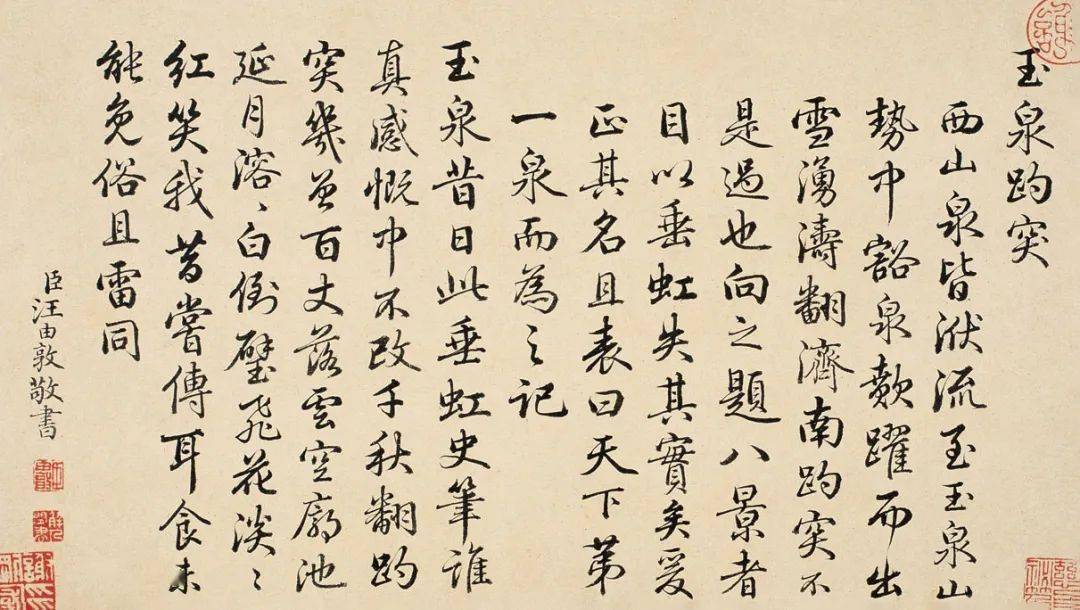 玉泉趵突
西山泉皆洑流至玉泉山
勢中豁泉歕躍而出
雪湧濤翻濟南趵突不
是過也向之題八景者
目以垂虹失其實矣爰
正其名且表曰天下第
一泉而為之記
玉泉昔日此垂虹史筆誰
真感慨中不改千秋翻趵
突幾曾百丈落雲空廓池
延月溶〻白倒壁飛花淡〻
紅笑我昔嘗傳耳食未
能免俗且雷同
臣汪由敦敬書